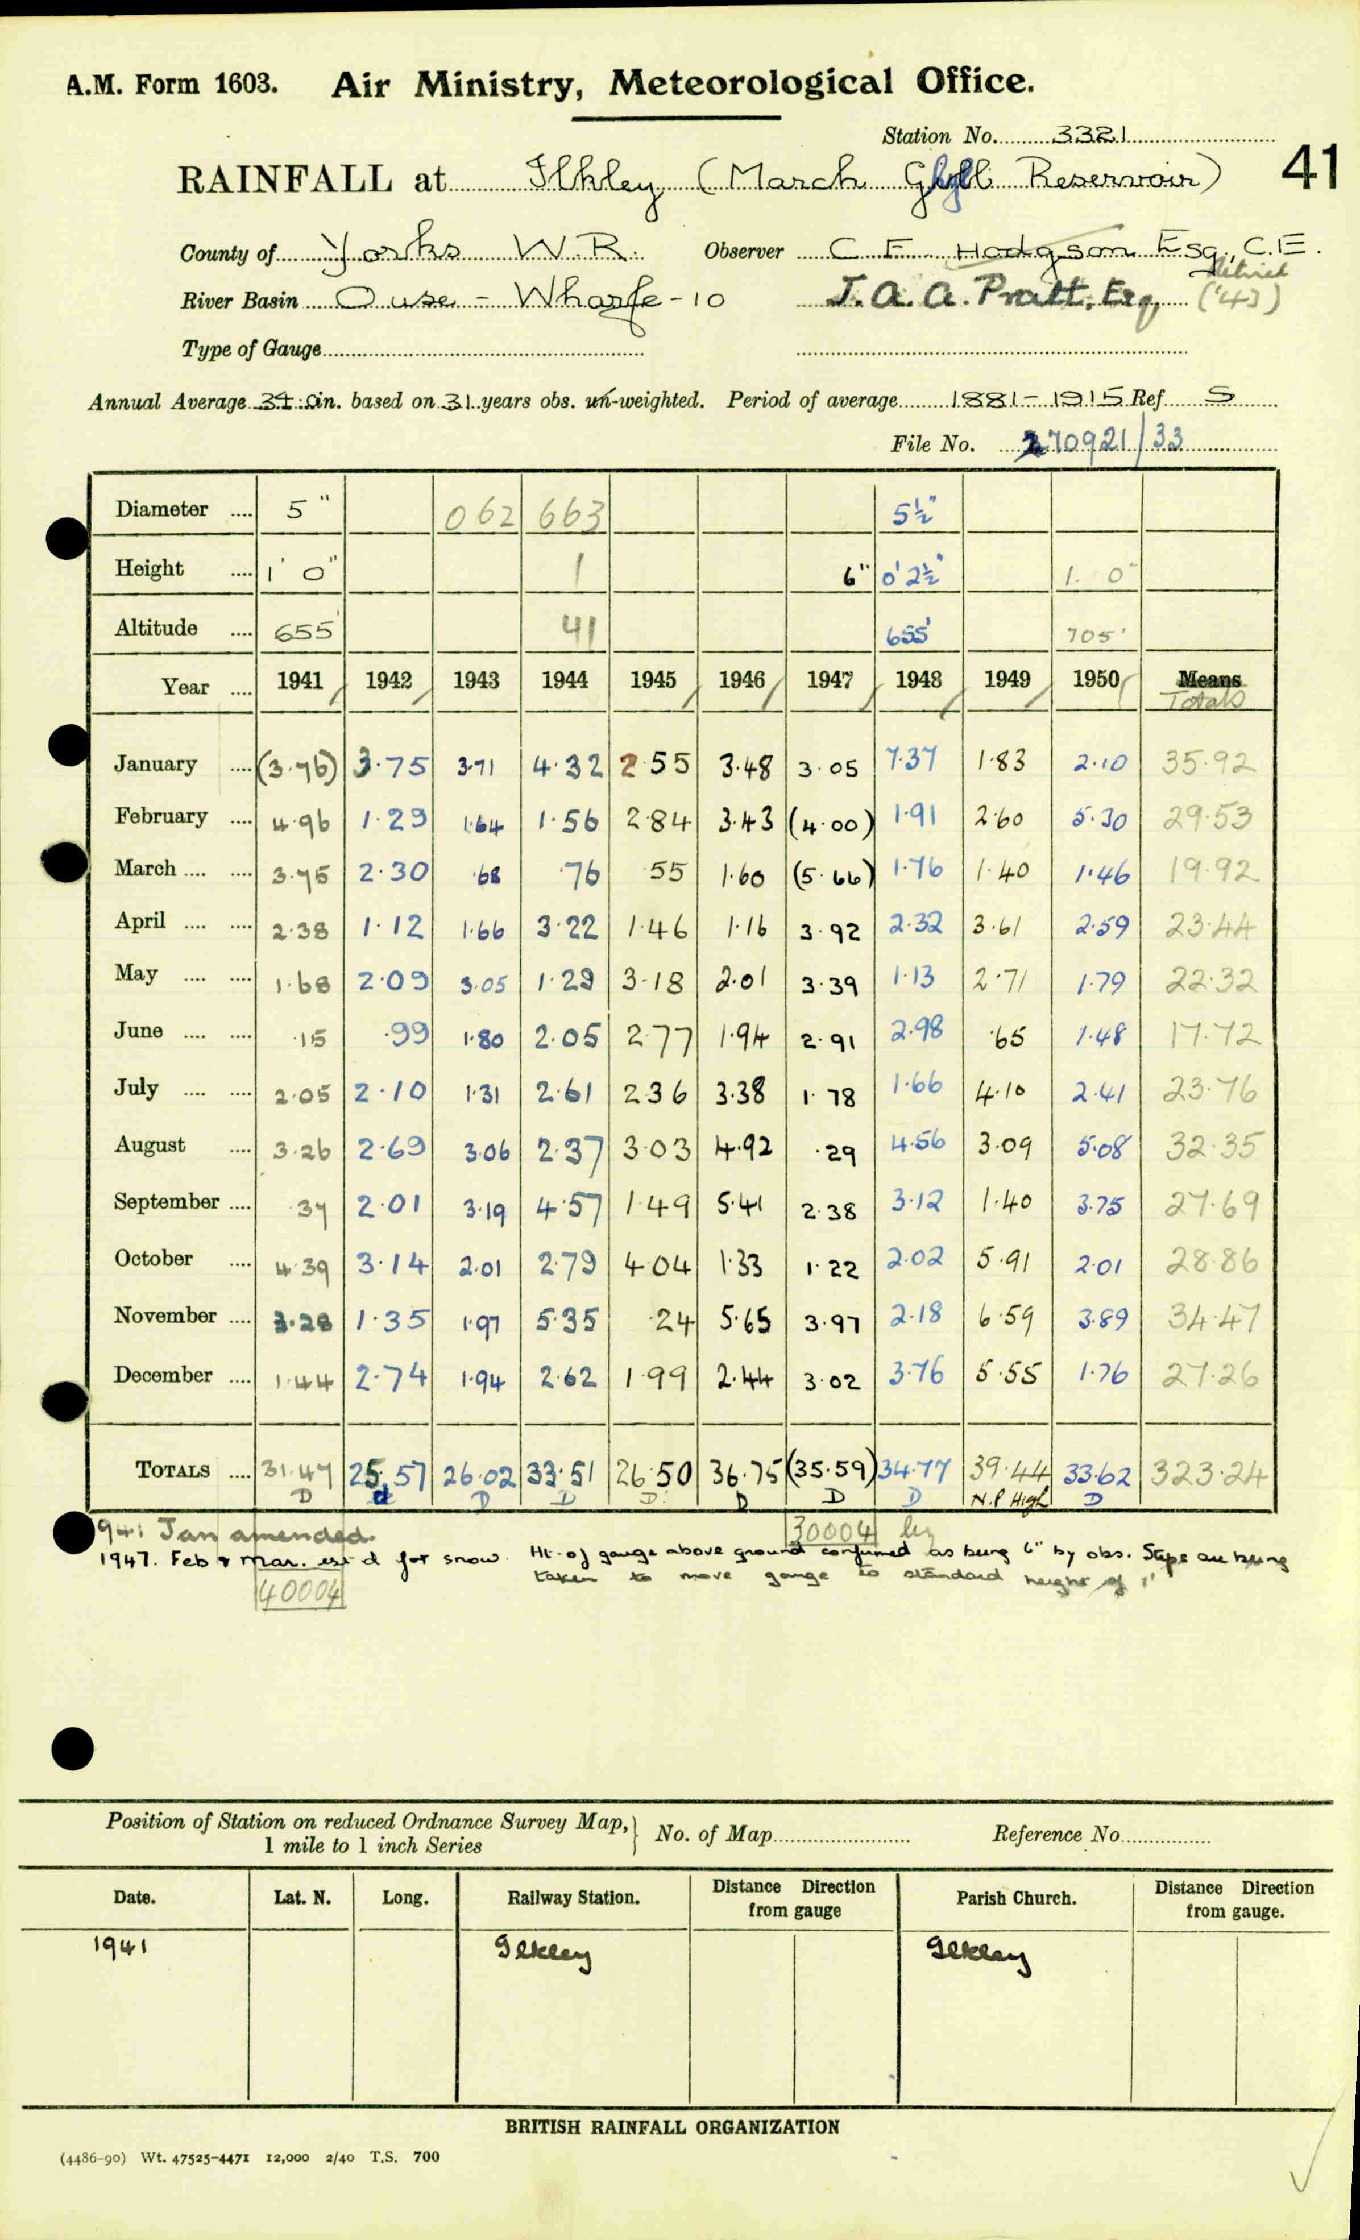 A.M. Form 1603. Air Ministry, Meteorological Office.
Station No. 3321
RAINFALL at Ilkley (March Ghyll Reservoir) 41
County of Yorks W.R. Observer C F Hodgson Esq, C.E.
River Basin Ouse - Wharfe - 10 J. A. A. Pratt, Esq. ('43)
Type of Gauge
Annual Average 34.0 in. based on 31 years obs. un-weighted. Period of average 1881 - 1915 Ref S
File No. 270921/33
Diameter .... 5" 062 663 5½"
Height .... 1' 0" 1 6" 0' 2½" 1. 0"
Altitude .... 655' 41 655' 705'
Year .... 1941 1942 1943 1944 1945 1946 1947 1948 1949 1950 Means
Totals
January .... (3.76) 3.75 3.71 4.32 2.55 3.48 3.05 7.37 1.83 2.10 35.92
February .... 4.96 1.29 1.64 1.56 2.84 3.43 (4.00) 1.91 2.60 5.30 29.53
March .... .... 3.75 2.30 .68 .76 .55 1.60 (5.66) 1.76 1.40 1.46 19.92
April .... .... 2.38 1.12 1.66 3.22 1.46 1.16 3.92 2.32 3.61 2.59 23.44
May .... .... 1.68 2.09 3.05 1.29 3.18 2.01 3.39 1.13 2.71 1.79 22.32
June .... .... .15 .99 1.80 2.05 2.77 1.94 2.91 2.98 .65 1.48 17.72
July .... .... 2.05 2.10 1.31 2.61 2.36 3.38 1.78 1.66 4.10 2.41 23.76
August .... 3.26 2.69 3.06 2.37 3.03 4.92 .29 4.56 3.09 5.08 32.35
September .... .37 2.01 3.19 4.57 1.49 5.41 2.38 3.12 1.40 3.75 27.69
October .... 4.39 3.14 2.01 2.79 4.04 1.33 1.22 2.02 5.91 2.01 28.86
November .... 3.28 1.35 1.97 5.35 .24 5.65 3.97 2.18 6.59 3.89 34.47
December .... 1.44 2.74 1.94 2.62 1.99 2.44 3.02 3.76 5.55 1.76 27.26
TOTALS .... 31.47 25.57 26.02 33.51 26.50 36.75 (35.59) 34.77 39.44 33.62 323.24
D d D D D D D D N.P High D
1941 Jan amended. 30004
1947. Feb & Mar. est'd for snow. Ht. of gauge above ground confirmed as being 6" by obs. Steps are being
taken to move gauge to standard height of 1'
40004
Position of Station on reduced Ordnance Survey Map,
1 mile to 1 inch Series
No. of Map Reference No.
Date. Lat. N. Long. Railway Station. Distance Direction from gauge Parish Church. Distance Direction from gauge.
1941 Ilkley Ilkley
BRITISH RAINFALL ORGANIZATION
(4486-90) Wt. 47525-4471 12,000 2/40 T.S. 700